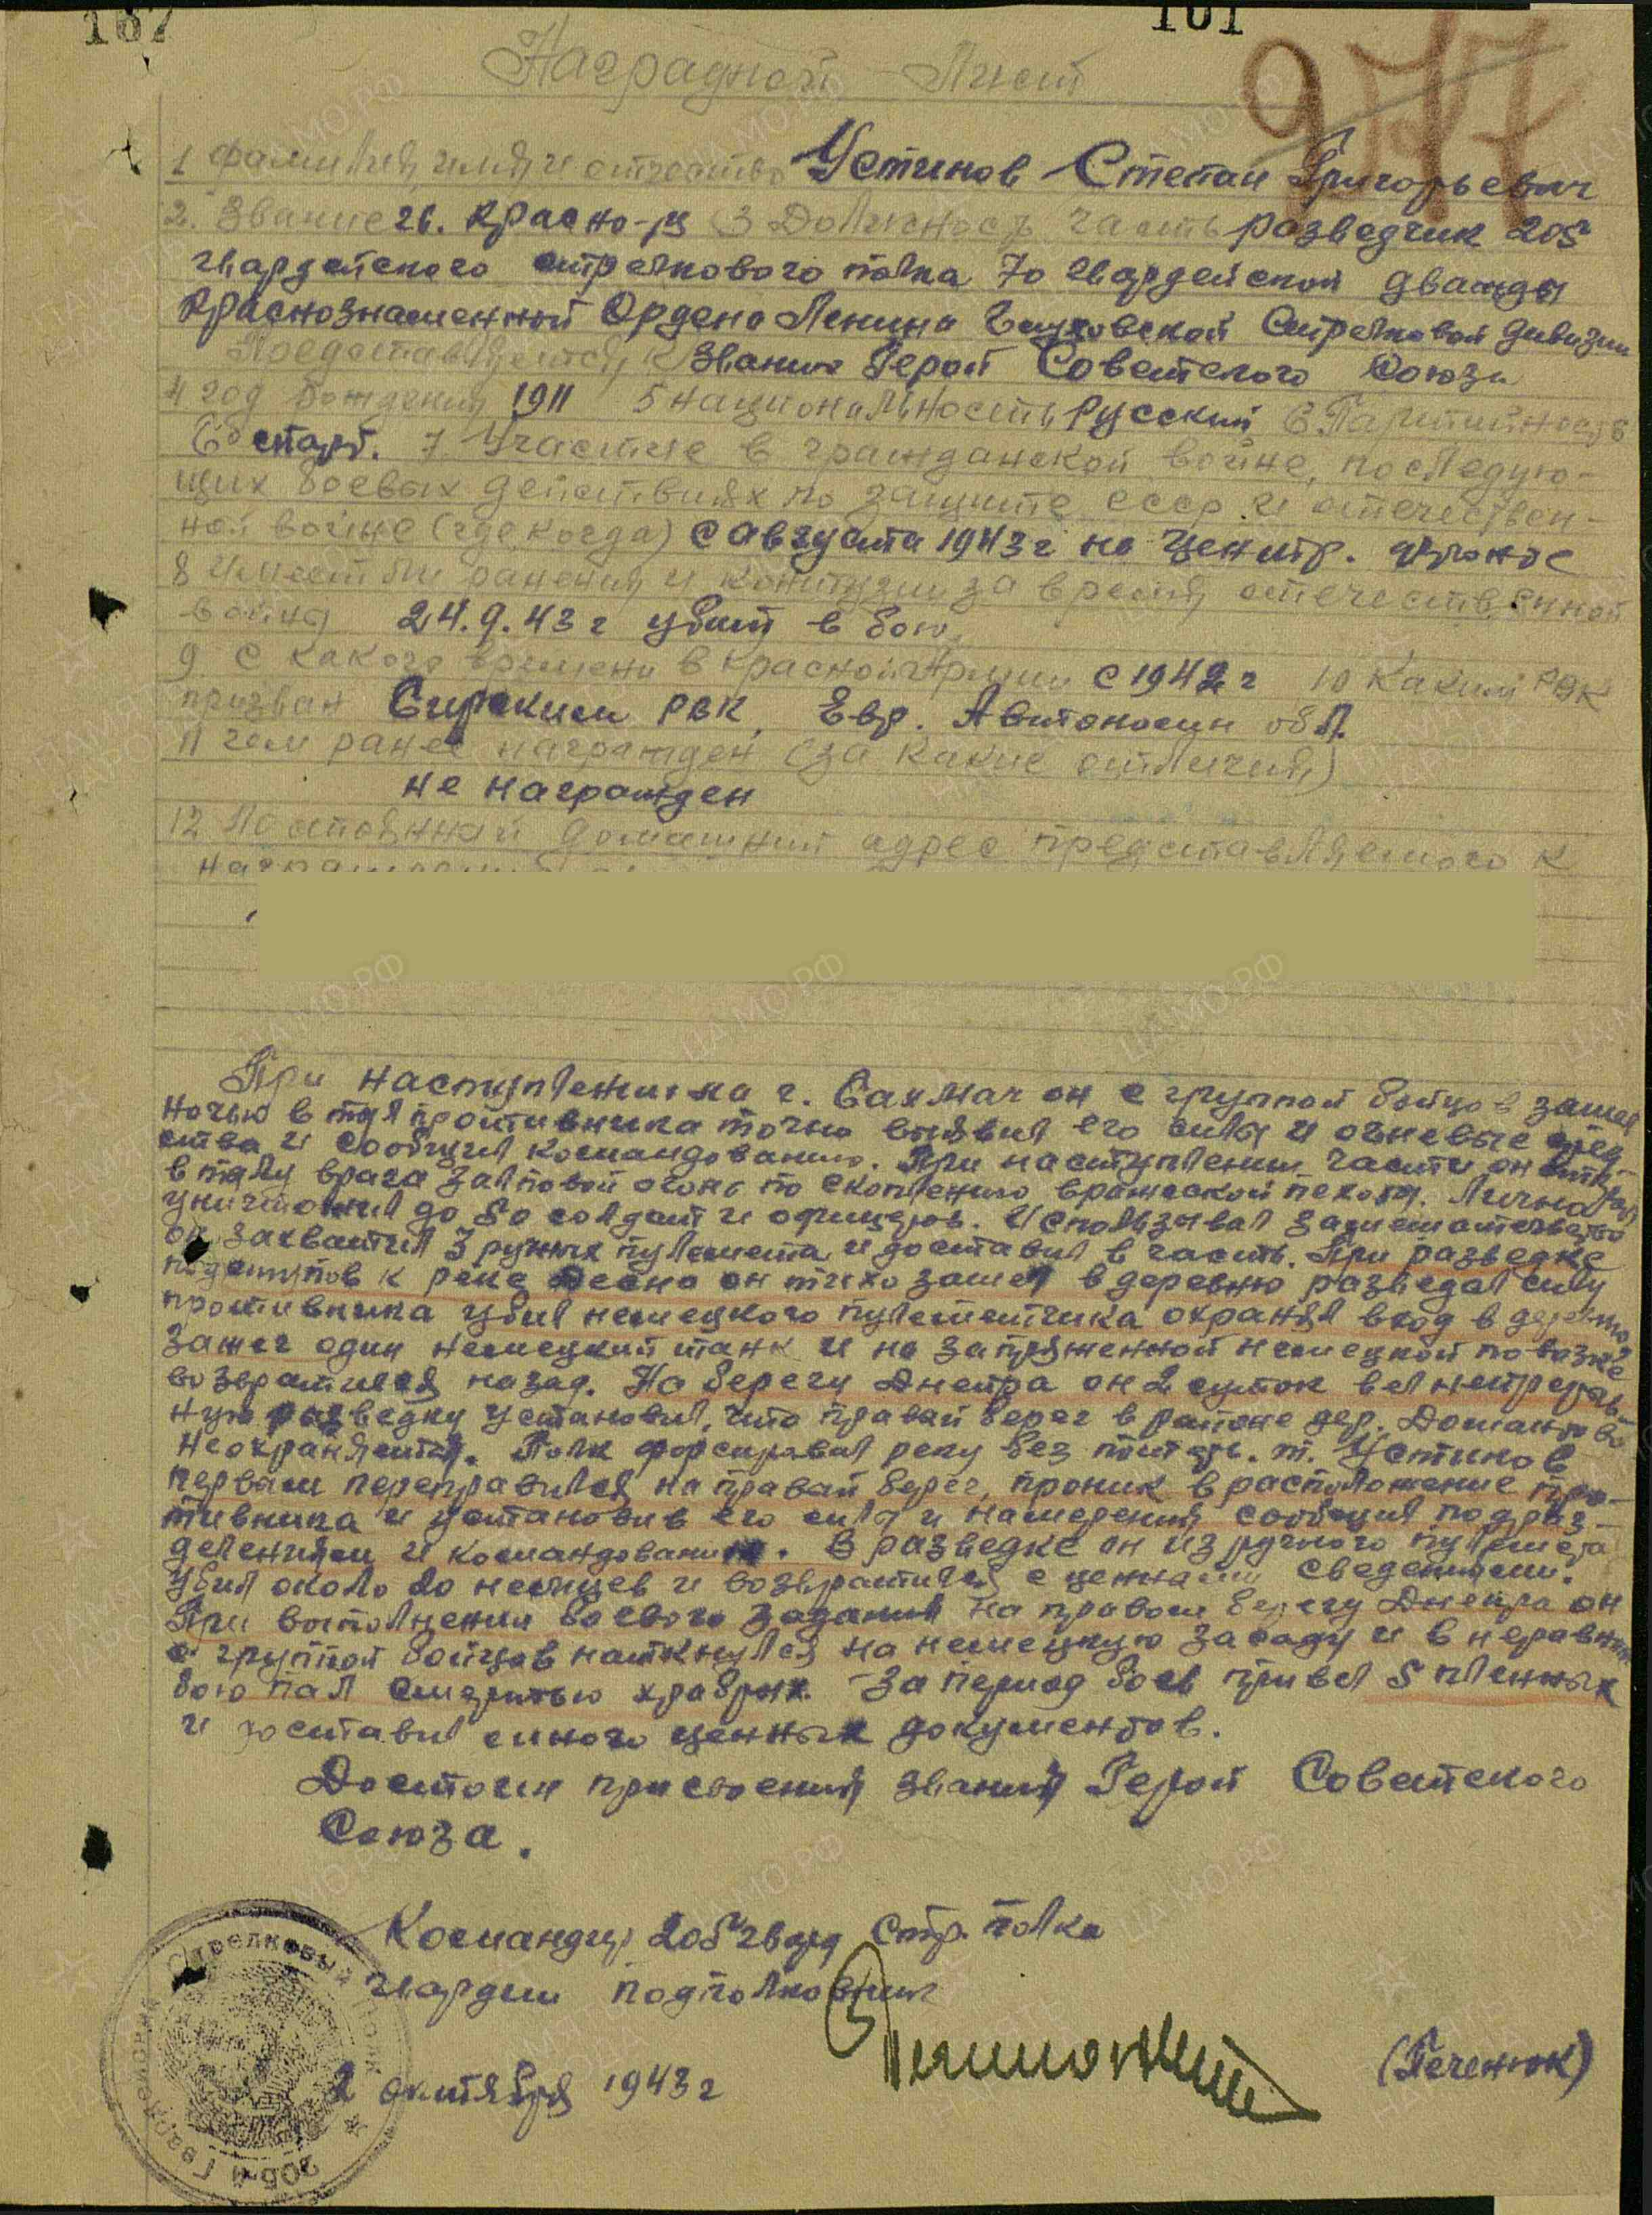 167
101
977
Наградной Лист
1 Фамилия, имя и отчество Устинов Степан Григорьевич
2. Звание гв. Красно-ц 3 Должность часть разведчик 205
гвардейского стрелкового полка 70 гвардейской дважды
Краснознаменной Ордена Ленина Глуховской Стрелковой дивизии
Представляется к Званию Герой Советского Союза
4 год рождения 1911 5 национальность Русский 6 Партийность
б парт. 7 Участие в гражданской войне, последую-
щих боевых действиях по защите ссср и отечествен-
ной войне (где когда) с августа 1943 г на Центр. фронте
8 Имеет ли ранения и контузии за время отечественной
войны 24.9.43 г убит в бою
9 С какого времени в Красной Армии с 1942 г 10 Каким РВК
призван Бирским РВК, Евр. Автономн обл.
11 чем ранее награжден (за какие отличия)
не награжден
12 Постоянный домашний адрес представляемого к
При наступлении на г. Бахмач он с группой бойцов зашел
ночью в тыл противника точно выявил его силы и огневые сред
ства и сообщил командованию. При наступлении части он
в тылу врага залповой огонь по скоплению вражеской пехоты. Лично
уничтожил до 80 солдат и офицеров. Использывал замешательство
он захватил 3 ручных пулемета и доставил в часть. При разведке
подступов к реке Десна он тихо зашел в деревню разведал силу
противника убил немецкого пулеметчика охраняя вход в деревню
зажег один немецкий танк и на запряженной немецкой повозке
возвратился назад. На берегу Днепра он 2 суток вел непрерыв
ную разведку установил, что правый берег в районе дер. Домантово
неохраняется. Полк форсировал реку без потерь. т. Устинов
первым переправился на правый берег, проник в расположение про-
тивника и установив его силы и намерения сообщил подраз-
делениям и командованию. В разведке он из ручного пулемета
убил около 20 немцев и возвратился с ценными сведениями.
При выполнении боевого задания на правом берегу Днепра он
с группой бойцов наткнулся на немецкую засаду и в неравном
бою пал смертью храбрых. За период боев привел 5 пленных
и доставил много ценных документов.
Достоин присвоения звания Герой Советского
Союза.
Командир 205 гвард Стр. полка
гвардии подполковник
(Печенюк)
2 октября 1943 г
205-й Гвардейский Стрелковый Полк